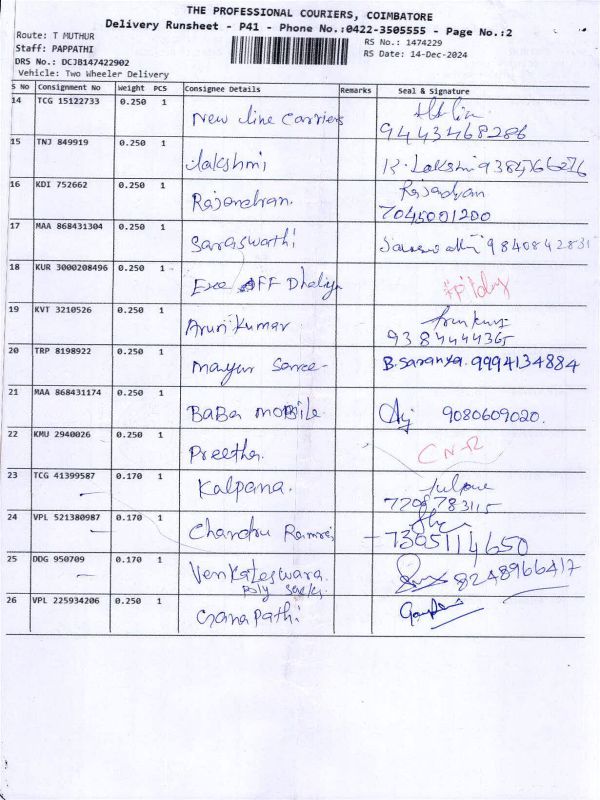 THE PROFESSIONAL COURIERS, COIMBATORE
Delivery Runsheet - P41 - Phone No.:0422-3505555 - Page No.:2
Route: T MUTHUR
RS No.: 1474229
Staff: PAPPATHI
RS Date: 14-Dec-2024
DRS No.: DCJB147422902
Vehicle: Two Wheeler Delivery
S No Consignment No Weight PCS Consignee Details Remarks Seal & Signature
14 TCG 15122733 0.250 1 New line Carriers
9443468286
15 TNJ 849919 0.250 1 Lakshmi K. Lakshmi 9384766276
16 KDI 752662 0.250 1 Rajendran.
7045001200
17 MAA 868431304 0.250 1 Saraswathi 9840842831
18 KUR 3000208496 0.250 1 Exe OFF
19 KVT 3210526 0.250 1 Arun Kumar
9384444365
20 TRP 8198922 0.250 1 mayur Saree- B.Saranya. 9994134884
21 MAA 868431174 0.250 1 BaBa mobile 9080609020.
22 KMU 2940026 0.250 1 Preetha.
23 TCG 41399587 0.170 1 Kalpana.
7208783115
24 VPL 521380987 0.170 1 Chandru
7305114650
25 DDG 950709 0.170 1 Venkateswara 8248966417
Poly
26 VPL 225934206 0.250 1 Ganapathi